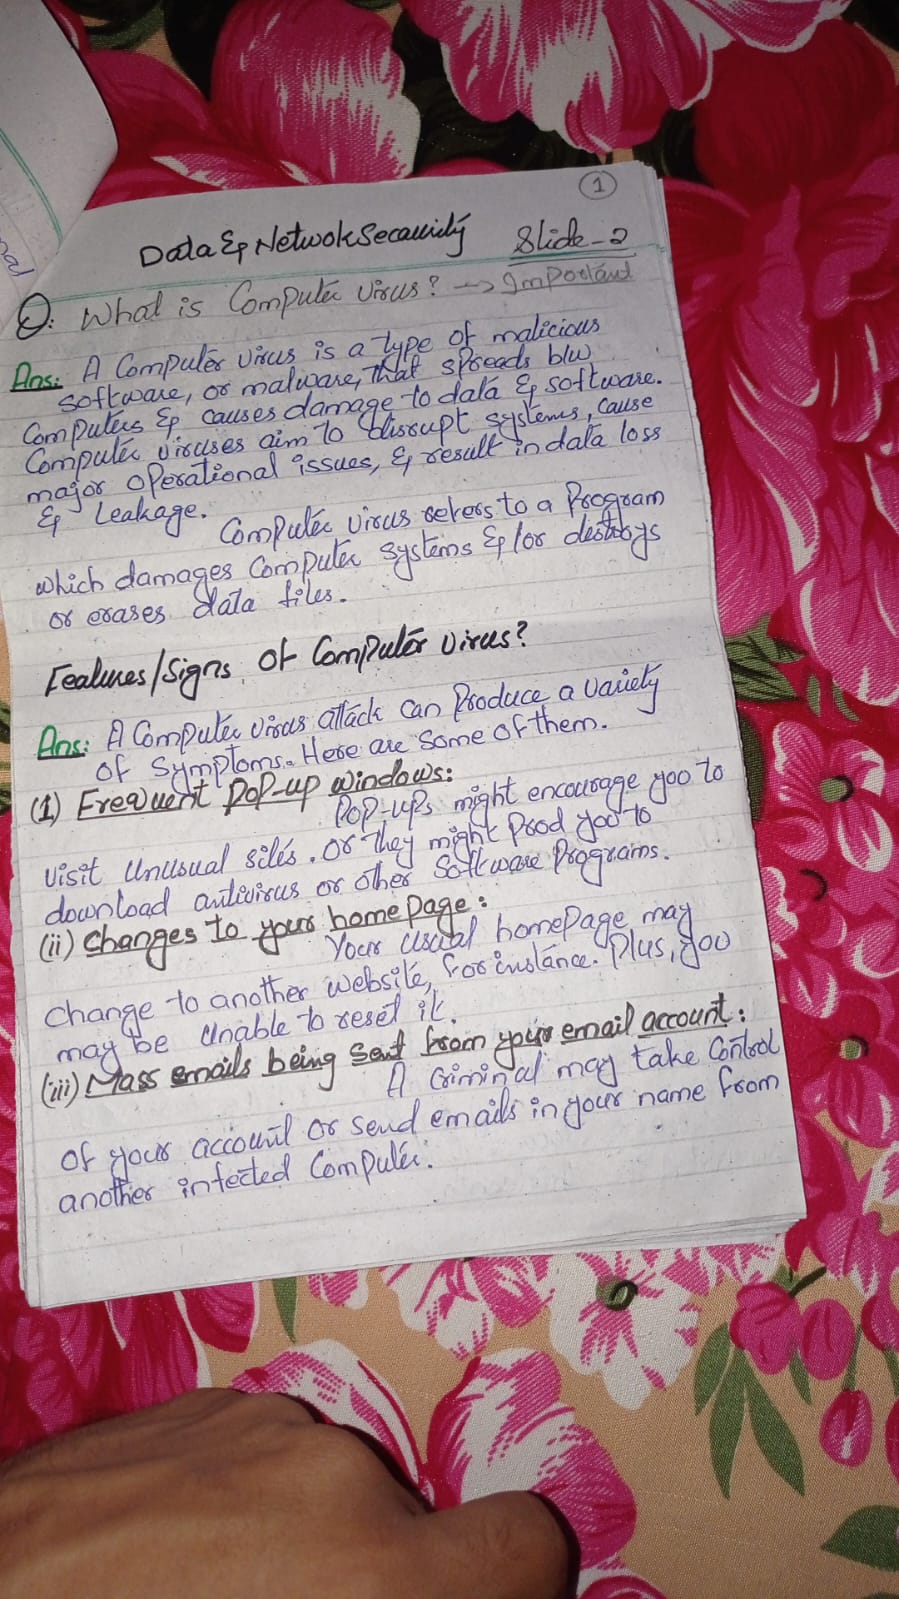 1
Data & Netwok Secauirity Slide-2
Q: What is Computer virus? → Important
Ans: A Computer virus is a type of malicious
software, or malware, that spreads b/w
Computers & causes damage to data & software.
Computer viruses aim to disrupt systems, cause
major operational issues, & result in data loss
& Leakage.
Computer virus refers to a Program
which damages Computer systems &/or destroys
or erases data files.
Features/Signs of Computer virus?
Ans: A Computer virus attack can Produce a variety
of Symptoms. Here are Some of them.
(1) Frequent Pop-up windows:
Pop-ups might encourage yoo to
visit Unusual sites. Or they might Prod yoo to
download antivirus or other Software Programs.
(ii) Changes to your homepage:
Your usual homepage may
change to another website, for instance. Plus, yoo
may be Unable to reset it.
(iii) Mass emails being Sent from your email account:
A Criminal may take Control
of your account or send emails in your name from
another infected Computer.